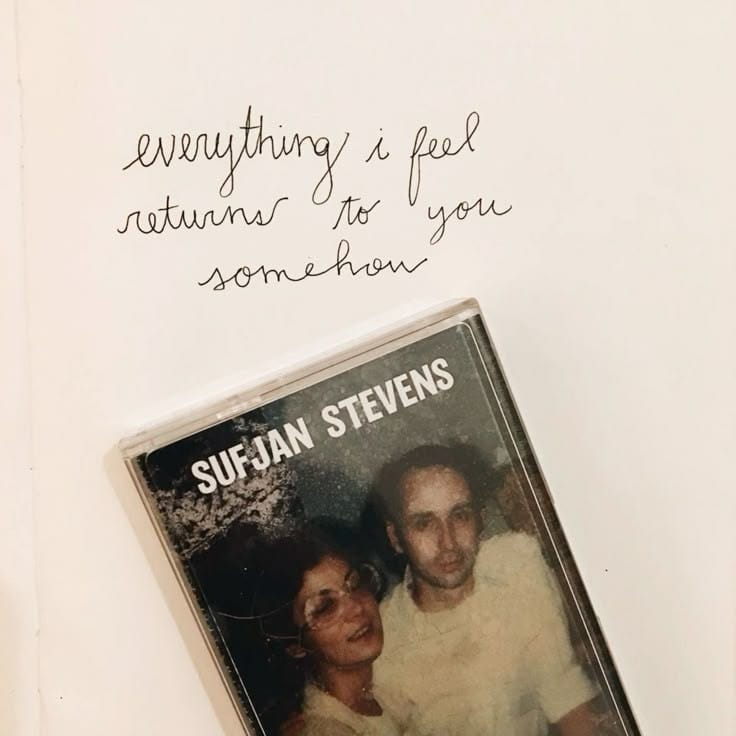 everything i feel
returns to you
somehow
SUFJAN STEVENS